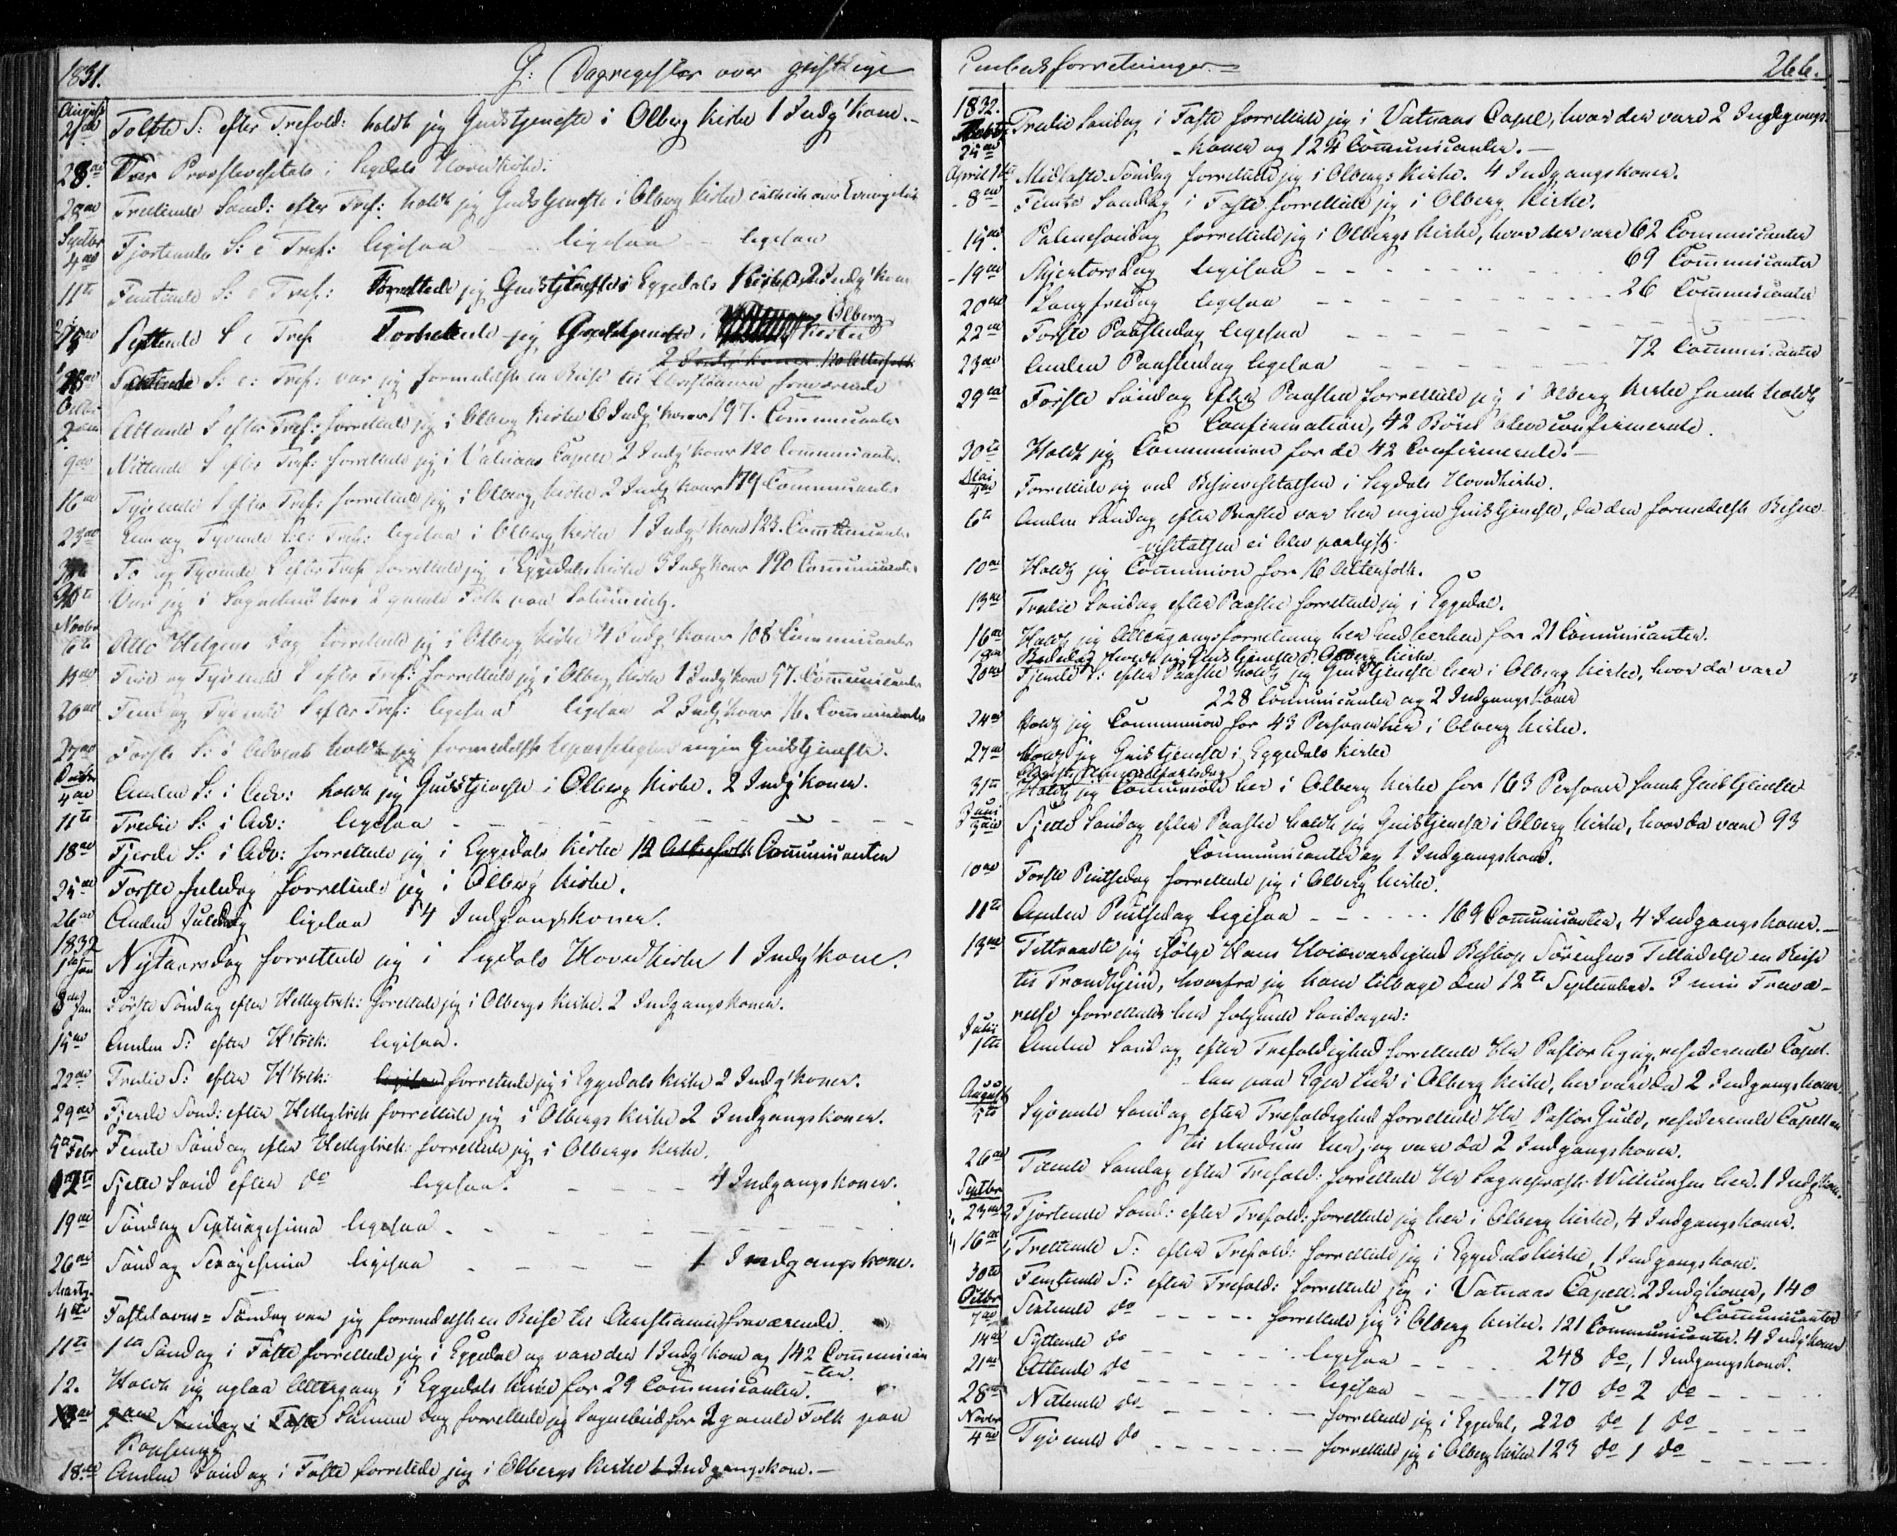 1831.
G: Dagregister over geistlige
August
21de Tolvte S: efter Trefold: holdt jeg Gudstjeneste i Olberg Kirke 1 Indg'kone.-
28de Var Provstevisitats i Sigdals Hovedkirke.
28de Trettende Sønd: efter Tref: holdt jeg Gudstjeneste i Olberg Kirke
Septbr
4de Fjortende S: e Tref: ligesaa - ligesaa - ligesaa
11te Femtende S: e Tref: Forrettede jeg Gudstjeneste i Eggedals Kirke 2 Indg'kon
Syttende S e Tref Forrettede jeg Gudstjeneste i Olberg Kirke
2 Indg'koner
S: e: Tref: var jeg formedelst en Reise til Christiania fraværende
Octbr
2den Attende S efter Tref: forrettede jeg i Olberg Kirke 6 Indg'koner 197. Communicanter
9de Nittende S efter Tref: forrettede jeg i Vatnaas Capell 2 Indg'koner 120 Communicanter.
16de Tyvende S efter Tref: forrettede jeg i Olberg Kirke 2 Indg'koner 179 Communicanter
23de Een og Tyvende S: e: Tref: ligesaa i Olberg Kirke 1 Indg'kone 123. Communicanter
To og Tyvende S efter Tref forrettede jeg i Eggedals Kirke 5 Indg'koner 190 Communicanter
Var jeg i Sognebud hos 2 gamle Folk paa
Novbr
6te Alle Helgens Dag forrettede jeg i Olberg Kirke 4 Indg'koner 108 Communicanter
13de Tre og Tyvende S efter Tref: forrettede jeg i Olberg Kirke 1 Indg'kone 57. Communicanter
20de Fem og Tyvende S efter Tref: ligesaa ligesaa 2 Indg'koner 76. Communicanter
27de Første S: i Advent holdt jeg formedelst Upasselighed ingen Gudstjeneste.
Decbr
4de Anden S: i Adv: holdt jeg Gudstjeneste i Olberg Kirke. 2 Indg'koner.
11te Tredie S: i Adv: ligesaa - - - -
18de Fjerde S: i Adv: forrettede jeg i Eggedals Kirke 12 Alterfolk Communicanter
25de Første Juledag forrettede jeg i Olberg Kirke.
26de Anden Juledag ligesaa 4 Indgangskoner.
1832
1ste Jan Nytaarsdag forrettede jeg i Sigdals Hovedkirke 1 Indg'kone.
8de Jan Første Søndag efter Helligtrek: forrettede jeg i Olbergs Kirke. 2 Indgangskoner.
15de Anden S: efter H'trek: ligesaa.
22de Tredie S: efter H'trek: ligesaa forrettede jeg i Eggedals Kirke 2 Indg'koner.
29de Fjerde Sønd: efter Helligtrek forrettede jeg i Olbergs Kirke 2 Indgangskoner.
5te Febr Femte Søndag efter Helligtrek: forrettede jeg i Olbergs Kirke.
12te Sjette Sønd efter do ligesaa. - - - 4 Indgangskoner.
19de Søndag Septuagesima ligesaa - - - -
26de Søndag Sexagesima ligesaa - - - - 1 Indgangskone.
Marts
4de Fastelavns-Søndag var jeg formedelst en Reise til Christiania fraværende.
11te 1ste Søndag i Faste forrettede jeg i Eggedal og vare der 1 Indg'kone og 142 Communican
ter.
12. Holdt jeg ogsaa Altergang i Eggedals Kirke for 29 Communicanter.
13de Søndag i Faste Samme Dag forrettede jeg Sognebud for 2 gamle Folk paa
18de Anden Søndag i Faste forrettede jeg i Olbergs Kirke 1 Indgangskone.-
Embedsforretninger.
266.
1832.
Marts
25de Tredie Søndag i Faste forrettede jeg i Vatnaas Capel, hvor der vare 2 Indgangs-
koner og 124 Communicanter.-
April 1ste Midfaste-Søndag forrettede jeg i Olbergs Kirke. 4 Indgangskoner.
- 8de Femte Søndag i Faste forrettede jeg i Olberg Kirke.
- 15de Palmesøndag forrettede jeg i Olbergs Kirke, hvor der vare 62 Communicanter
- 19de Skjertorsdag ligesaa - - - - 69 Communicanter
20de Langfredag ligesaa - - - - 26 Communicanter
22de Første Paaskedag ligesaa - - - -
23de Anden Paaskedag ligesaa - - - - 72 Communicanter
29de Første Søndag efter Paaske forrettede jeg i Olberg Kirke samt holdt
Confirmation, 42 Børn bleve confirmerede.
30te Holdt jeg Communion for de 42 Confirmerede.-
Mai
4de Forrettede jeg ved Bispevisitatsen i Sigdals Hovedkirke.
6te Anden Søndag efter Paaske var her ingen Gudstjeneste, da den formedelst Bispe-
visitatsen ei blev paalyst.
10de Holdt jeg Communion for 16 Alterfolk.
13de Tredie Søndag efter Paaske forrettede jeg i Eggedal.
16de Holdt jeg Altergangsforretning her for 21 Communicanter.
Bededag holdt jeg Gudstjeneste i Olberg Kirke
20de Fjerde S: efter Paaske holdt jeg Gudstjeneste her i Olberg Kirke, hvor da vare
228 Communicanter og 2 Indgangskoner
24de holdt jeg Communion for 43 Personer her i Olberg Kirke.
27de holdt jeg Gudstjeneste i Eggedals Kirke
Christi Himmelfartsdag
31te Holdt jeg Communion her i Olberg Kirke for 163 Personer samt Gudstjeneste
Juni
3die Sjette Søndag efter Paaske holdt jeg Gudstjeneste i Olberg Kirke, hvor da vare 93
Communicanter og 1 Indgangskone.
10de Første Pintsedag forrettede jeg i Olberg Kirke.
11te Anden Pintsedag ligesaa - - - - 169 Communicanter, 4 Indgangskoner.-
13de Tiltraadte jeg ifølge Hans Høiærværdighed Biskop Sørensens Tilladelse en Reise
til Trondhjem, hvorfra jeg kom tilbage den 12te September. I min Fravæ-
relse forrettedes her følgende Søndager:
Julii
1ste Anden Søndag efter Trefoldighed forrettede Hr Pastor residerende Capel-
lan paa Eger i Olberg Kirke, her vare da 2 Indgangskoner.
August
5te Syvende Søndag efter Trefoldighed forrettede Hr Pastor residerende Capellan
til Modum her, og vare da 2 Indgangskoner.
26de Tiende Søndag efter Trefold: forrettede Hr Sognepræst Willumsen her. 1 Indg'kone.
Septbr
23de Fjortende Sønd: efter Trefold: forrettede jeg her i Olberg Kirke, 4 Indgangskoner.
16de Trettende S: efter Trefold: forrettede jeg i Eggedals Kirke, 1 Indgangskone.
30te Femtende S: efter Trefold: forrettede jeg i Vatnaas Capell. 2 Indg'koner, 140
Communicanter
Octbr
7de Sextende do - - - forrettede jeg i Olberg Kirke. 121 Communicanter. 4 Indg'koner
14de Syttende do - - - ligesaa - - 248 do, 1 Indgangskone.
21de Attende do - - - ligesaa - - 170 do 2 do - -
28de Nittende do - - - forrettede jeg i Eggedal, 220 do 1 do - -
Novbr
4de Tyvende do - - - forrettede jeg i Olberg Kirke 123 do 1 do - -